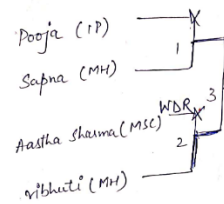 Pooja (IP)
1
Sapna (MH)
WDR
3
Aastha Sharma (MSC)
2
Vibhuti (MH)